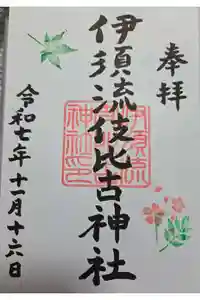 奉拝
伊須流岐比古神社
伊須流
岐比古
神社印
令和七年十一月十六日